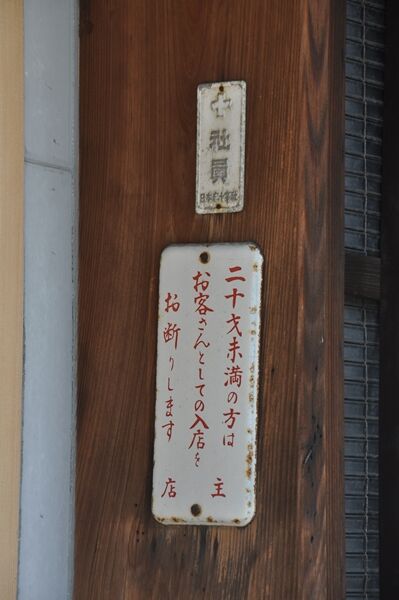 社員
日本赤十字社
二十才未満の方は
お客さんとしての入店を
お断りします
店主